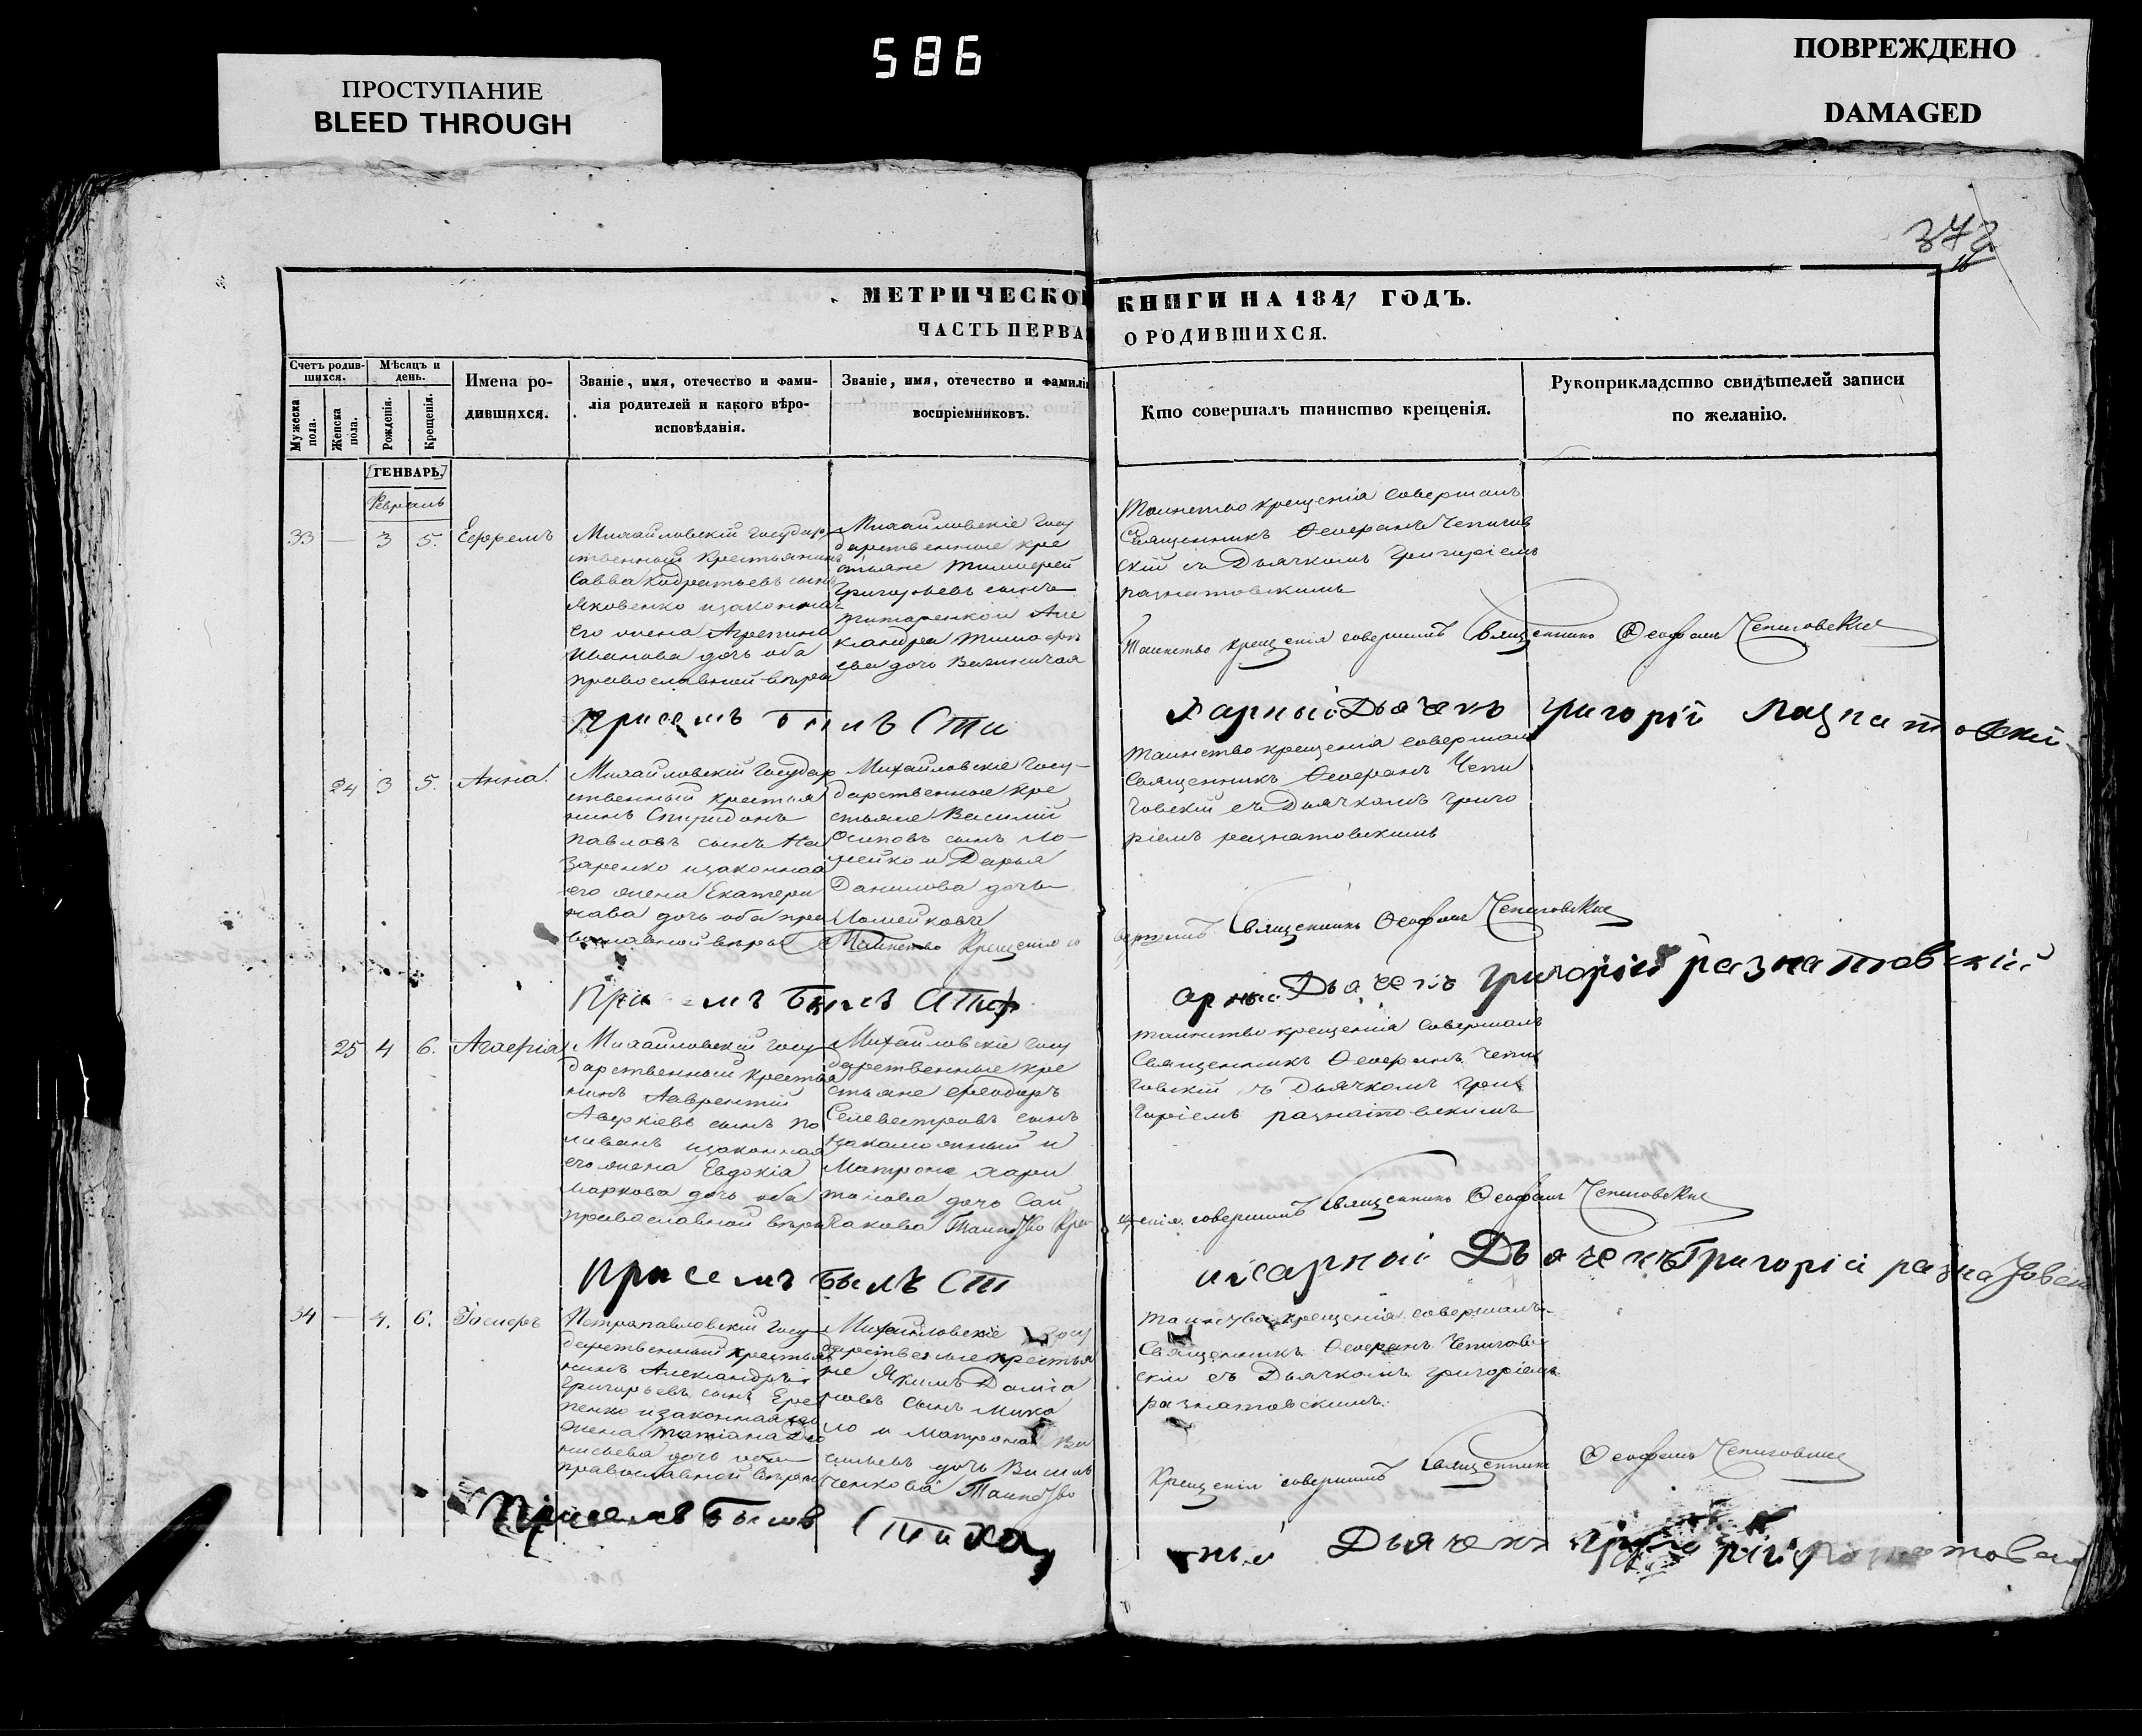 586
ПРОСТУПАНИЕ
BLEED THROUGH
ПОВРЕЖДЕНО
DAMAGED
МЕТРИЧЕСКО КНИГИ НА 1841 ГОДЪ.
ЧАСТЬ ПЕРВА О РОДИВШИХСЯ.
Счетъ родив-
шихся.
Мужеска
пола.
Женска
пола.
Мѣсяцъ и
день.
Рожденія.
Крещенія.
Имена ро-
дившихся.
Званіе, имя, отечество и фами-
лія родителей и какого вѣро-
исповѣданія.
Званіе, имя, отечество и фамилі
воспріемниковъ.
Кто совершалъ таинство крещенія.
Рукоприкладство свидѣтелей записи
по желанію.
ГЕНВАРЬ.
Февраль
33 — 3 5. Ефремъ
Михайловскій государ
ственный крестьянинъ
Савва Кодратьевъ сынъ
Яковенко изаконная
его жена Агрепина
Иванова дочь оба
православной вѣры
Михайловскіе госу
дарственные кре
стьяне Тимофей
Григорьевъ сынъ
Титаренко и Але
ксандра Тимофѣ
ева дочь
Таинство крещенія совершалъ
Священникъ Феофанъ Чепигов
скій съ Дьячкомъ Григоріемъ
разнатовскимъ
Таинство крещенія совершилъ Священникъ Феофанъ Чепиговскій
При семъ былъ Сти
харный Дьячекъ Григорій Разнатовскій
24 3 5. Анна.
Михайловскій государ
ственный крестья
нинъ Спиридонъ
Павловъ сынъ На
заренко изаконная
его жена Екатери
дочь оба пра
вославной вѣры
Михайловскіе госу-
дарственные кре
стьяне Василій
Осиповъ сынъ Ло-
мейко и Дарья
Данилова дочь
Ломейкова
Таинство Крещенія со
Таинство крещенія совершал
Священникъ Феофанъ Чепи
говскій съ Дьячкомъ Григо
ріемъ разнатовскимъ
вершилъ Священникъ Феофанъ Чепиговскій
При семъ былъ Стих
арный Дьячекъ Григорій разнатовскій
25 4 6. Агафія
Михайловскій госу
дарственный крестья
нинъ Лаврентій
Аверкіевъ сынъ По
ливанъ изаконная
его жена Евдокія
Маркова дочь оба
православной вѣры
Михайловскіе госу
дарственные кре
стьяне Феодоръ
Селевестровъ сынъ
и
Матрона Хари
тонова дочь Сай
дакова Таинство Кре
Таинство крещенія совершалъ
Священникъ Феофанъ Чепи
говскій съ Дьячкомъ Гри
горіемъ разнатовскимъ
щенія совершилъ Священникъ Феофанъ Чепиговскій
При семъ былъ Ст
ихарный Дьячекъ Григорій разнатовск
34 — 4. 6. Іосифъ
Петропавловскій госу
дарственный крестья
нинъ Александръ
Григорьевъ сынъ Ере
менко изаконная его
жена Татіана Де
нисьева дочь оба
православной вѣры
Михайловскіе госу
дарственные крестья
не Якимъ
новъ сынъ Мика
ло и Матрона Ва
сильева дочь Василь
ченкова Таинство
Таинство крещенія совершалъ
Священникъ Феофанъ Чепигов
скій съ Дьячкомъ Григоріемъ
разнатовскимъ.
Крещенія совершилъ Священникъ Феофанъ Чепиговскій
При семъ былъ Стихар
ный Дьячекъ Григорій разнатовскій